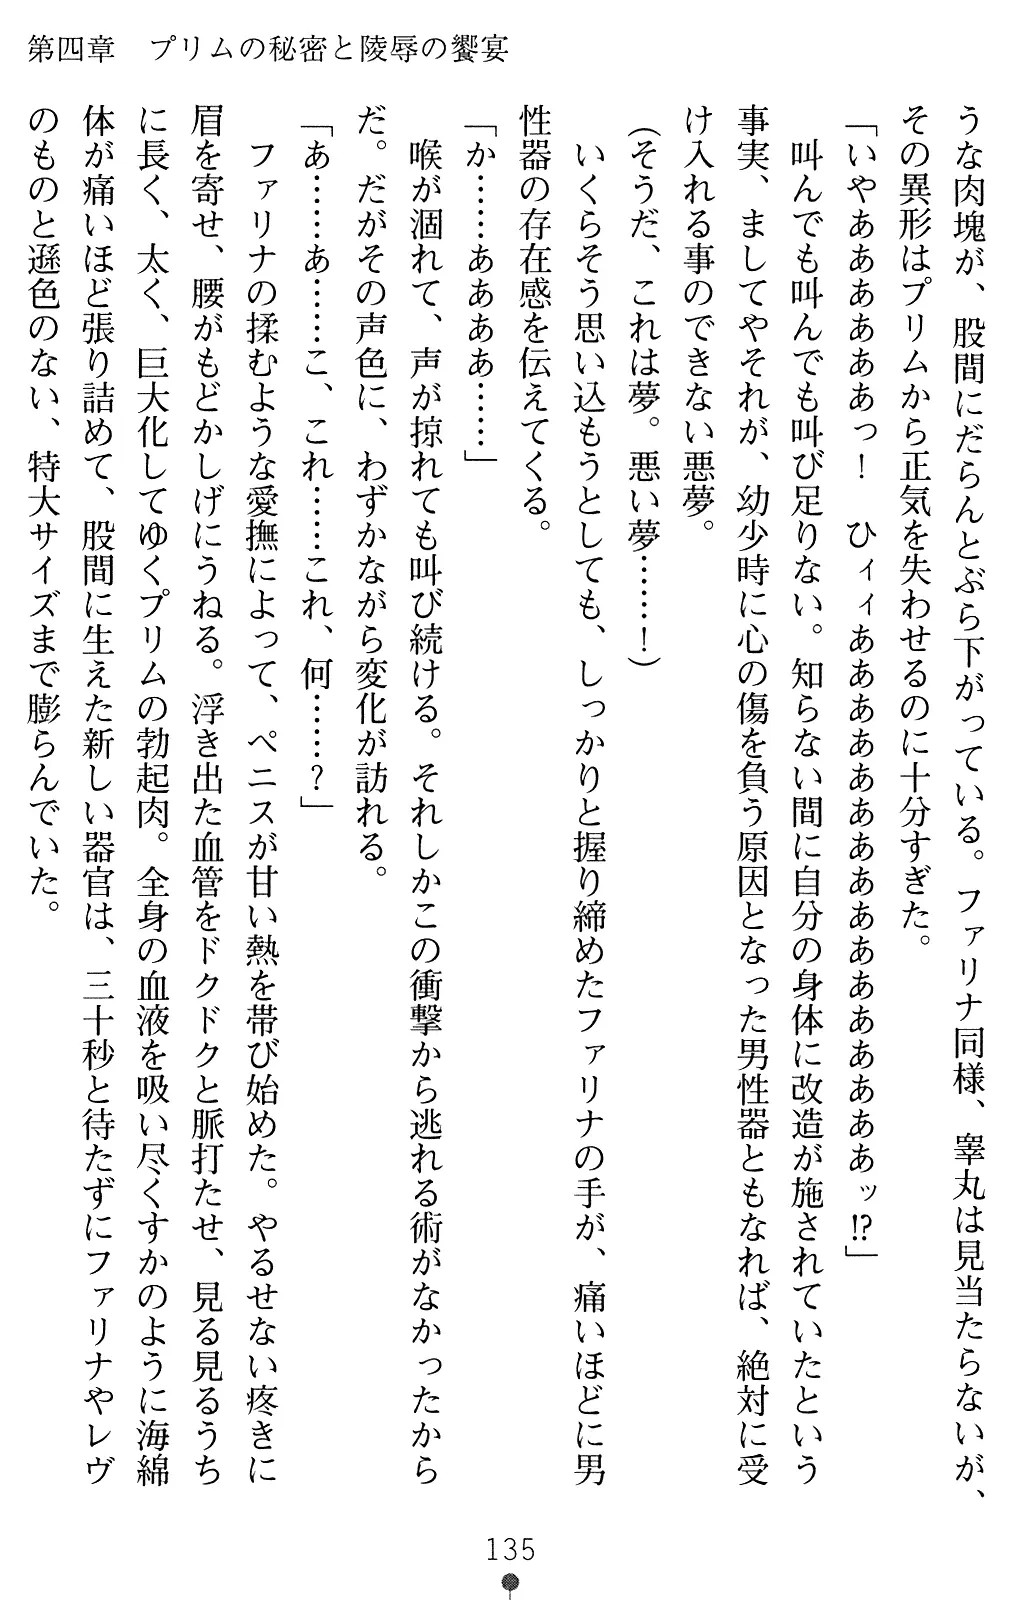 第四章　プリムの秘密と陵辱の饗宴
うな肉塊が、股間にだらんとぶら下がっている。ファリナ同様、睾丸は見当たらないが、
その異形はプリムから正気を失わせるのに十分すぎた。
「いやああああああっ！　ひィィああああああああああああああッ!?」
　叫んでも叫んでも叫び足りない。知らない間に自分の身体に改造が施されていたという
事実、ましてやそれが、幼少時に心の傷を負う原因となった男性器ともなれば、絶対に受
け入れる事のできない悪夢。
（そうだ、これは夢。悪い夢……！）
　いくらそう思い込もうとしても、しっかりと握り締めたファリナの手が、痛いほどに男
性器の存在感を伝えてくる。
「か……ああああ……」
　喉が涸れて、声が掠れても叫び続ける。それしかこの衝撃から逃れる術がなかったから
だ。だがその声色に、わずかながら変化が訪れる。
「あ……あ……こ、これ……これ、何……？」
　ファリナの揉むような愛撫によって、ペニスが甘い熱を帯び始めた。やるせない疼きに
眉を寄せ、腰がもどかしげにうねる。浮き出た血管をドクドクと脈打たせ、見る見るうち
に長く、太く、巨大化してゆくプリムの勃起肉。全身の血液を吸い尽くすかのように海綿
体が痛いほど張り詰めて、股間に生えた新しい器官は、三十秒と待たずにファリナやレヴ
のものと遜色のない、特大サイズまで膨らんでいた。
135